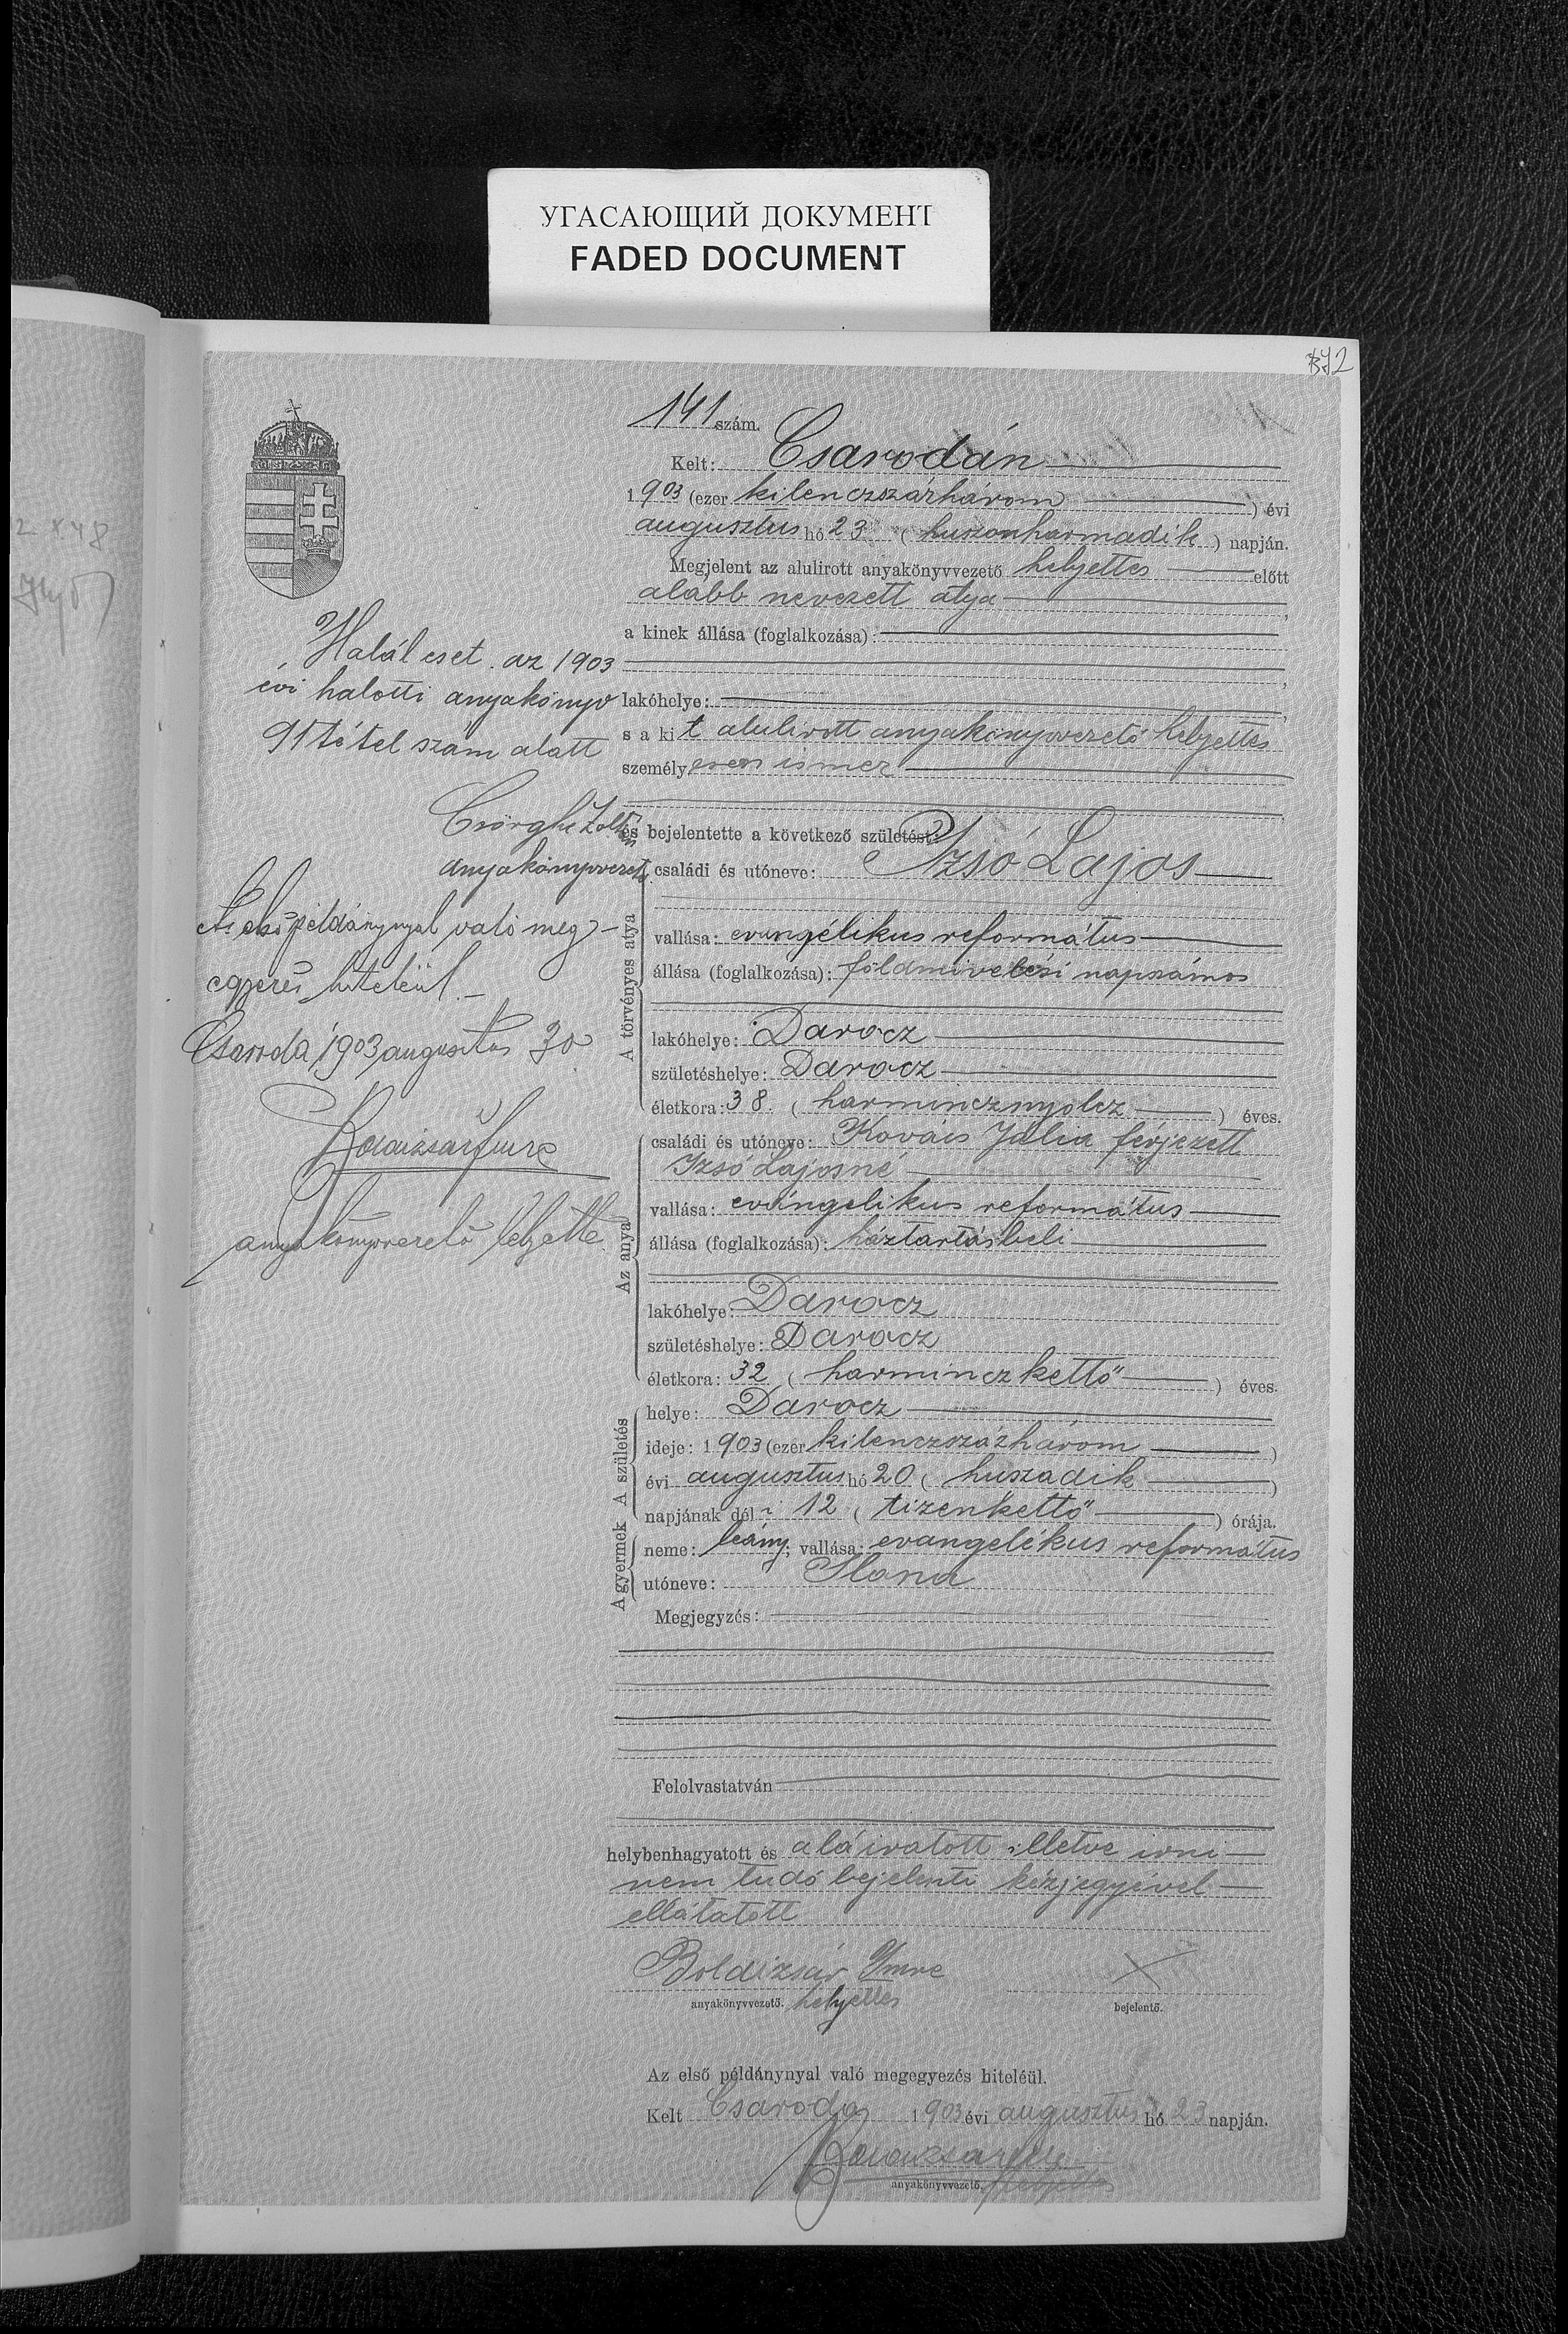 УГАСАЮЩИЙ ДОКУМЕНТ
FADED DOCUMENT
141 szám.
Kelt: Csarodán
1903 (ezer kilenczszázhárom) évi
augusztus hó 23 (huszonharmadik) napján.
Megjelent az alulirott anyakönyvvezető helyettes előtt
alább nevezett atya,
a kinek állása (foglalkozása):
lakóhelye:
s a kit alulirott anyakönyvvezető helyettes
személyesen ismer
és bejelentette a következő születést:
A törvényes atya
családi és utóneve: Izsó Lajos
vallása: evangélikus református
állása (foglalkozása): földmivelési napszámos
lakóhelye: Darocz
születéshelye: Darocz
életkora: 38 (harmincznyolcz) éves.
Az anya
családi és utóneve: Kovács Julia férjezett
Izsó Lajosné
vallása: evangelikus református
állása (foglalkozása): háztartásbeli
lakóhelye: Darocz
születéshelye: Darocz
életkora: 32 (harminczkettő) éves.
A születés
helye: Darocz
ideje: 1903 (ezer kilenczszázhárom)
évi augusztus hó 20 (huszadik)
napjának dél i 12 (tizenkettő) órája.
A gyermek
neme: leány; vallása: evangelékus református
utóneve: Ilona
Megjegyzés:
Felolvastatván
helybenhagyatott és aláiratott illetve irni
nem tudó bejelentő kézjegyével
ellátatott
Boldizsár Imre X
anyakönyvvezető. helyettes bejelentő.
Az első példánynyal való megegyezés hiteléül.
Kelt Csaroda 1903 évi augusztus hó 23 napján.
anyakönyvvezető. helyettes
Halál eset az 1903
évi halotti anyakönyv
91 tétel szám alatt
Csörghe Zoltán
anyakönyvvezető
Az első példánynyal való meg-
egyezés hiteléül.
Csaroda, 1903 augusztus 30
Boldizsár Imre
anyakönyvvezető helyette